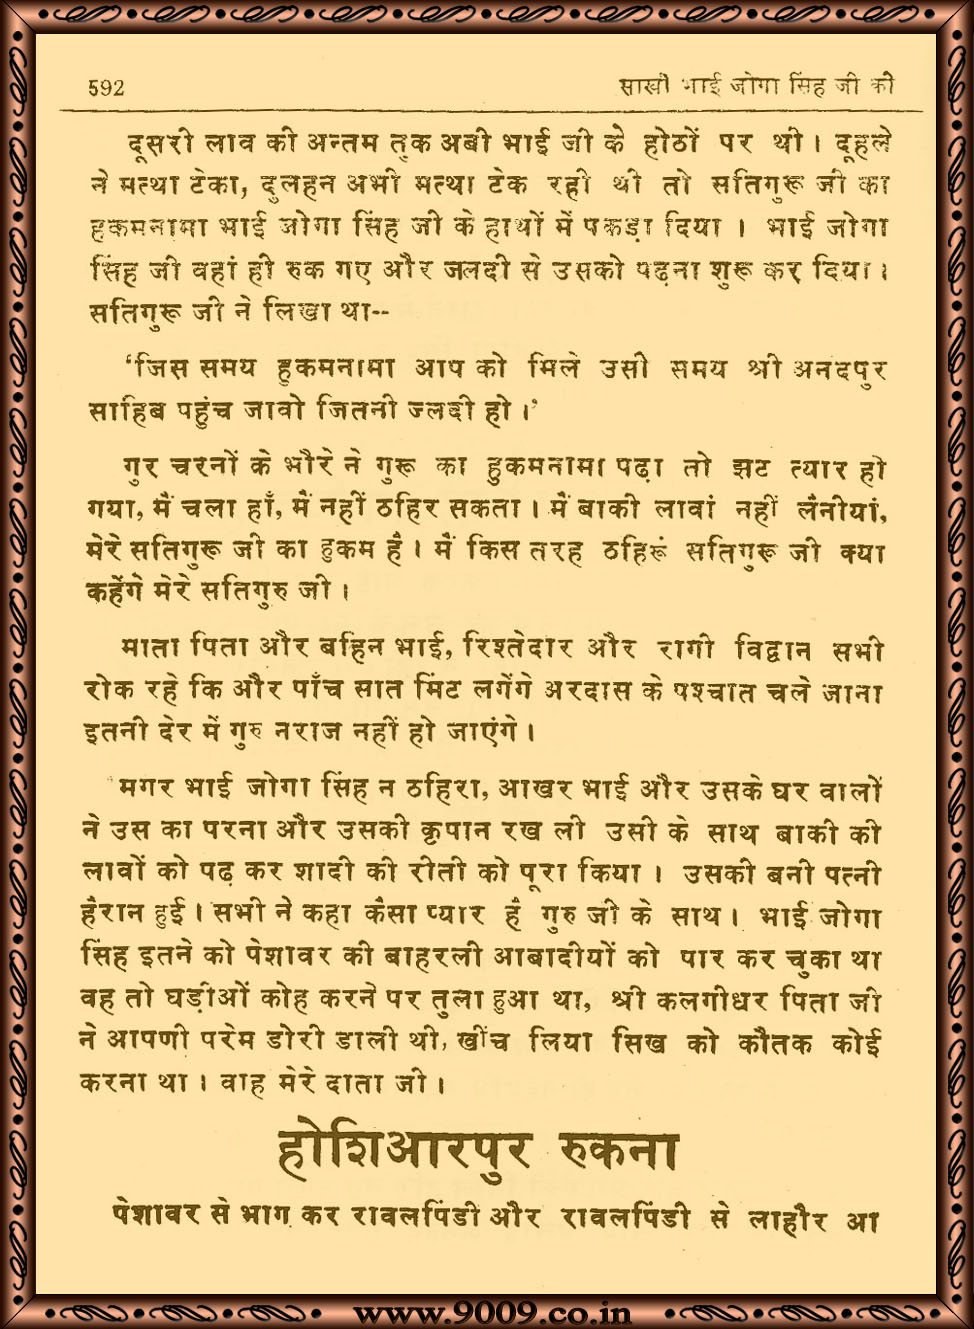 592 साखी भाई जोगा सिंह जी की
दूसरी लाव की अन्तम तुक अबी भाई जी के होठों पर थी। दूहले
ने मत्था टेका, दुलहन अभी मत्था टेक रही थी तो सतिगुरू जी का
हकमनामा भाई जोगा सिंह जी के हाथों में पकड़ा दिया। भाई जोगा
सिंह जी वहां ही रुक गए और जलदी से उसको पढ़ना शुरू कर दिया।
सतिगुरू जी ने लिखा था--
'जिस समय हुकमनामा आप को मिले उसी समय श्री अनदपुर
साहिब पहुंच जावो जितनी ज्लदी हो।'
गुर चरनों के भौरे ने गुरू का हुकमनामा पढ़ा तो झट त्यार हो
गया, मैं चला हाँ, मैं नहीं ठहिर सकता। मैं बाकी लावां नहीं लैनीयां,
मेरे सतिगुरू जी का हुकम है। मैं किस तरह ठहिरूं सतिगुरू जी क्या
कहेंगे मेरे सतिगुरु जी।
माता पिता और बहिन भाई, रिश्तेदार और रागी विद्वान सभी
रोक रहे कि और पाँच सात मिंट लगेंगे अरदास के पश्चात चले जाना
इतनी देर में गुरु नराज नहीं हो जाएंगे।
मगर भाई जोगा सिंह न ठहिरा, आखर भाई और उसके घर वालों
ने उस का परना और उसकी कृपान रख ली उसी के साथ बाकी की
लावों को पढ़ कर शादी की रीती को पूरा किया। उसकी बनी पत्नी
हैरान हुई। सभी ने कहा कैसा प्यार है गुरु जी के साथ। भाई जोगा
सिंह इतने को पेशावर की बाहरली आबादीयों को पार कर चुका था
वह तो घड़ीओं कोह करने पर तुला हुआ था, श्री कलगीधर पिता जी
ने आपणी परेम डोरी डाली थी, खींच लिया सिख को कौतक कोई
करना था। वाह मेरे दाता जी।
होशिआरपुर रुकना
पेशावर से भाग कर रावलपिंडी और रावलपिंडी से लाहौर आ
www.9009.co.in